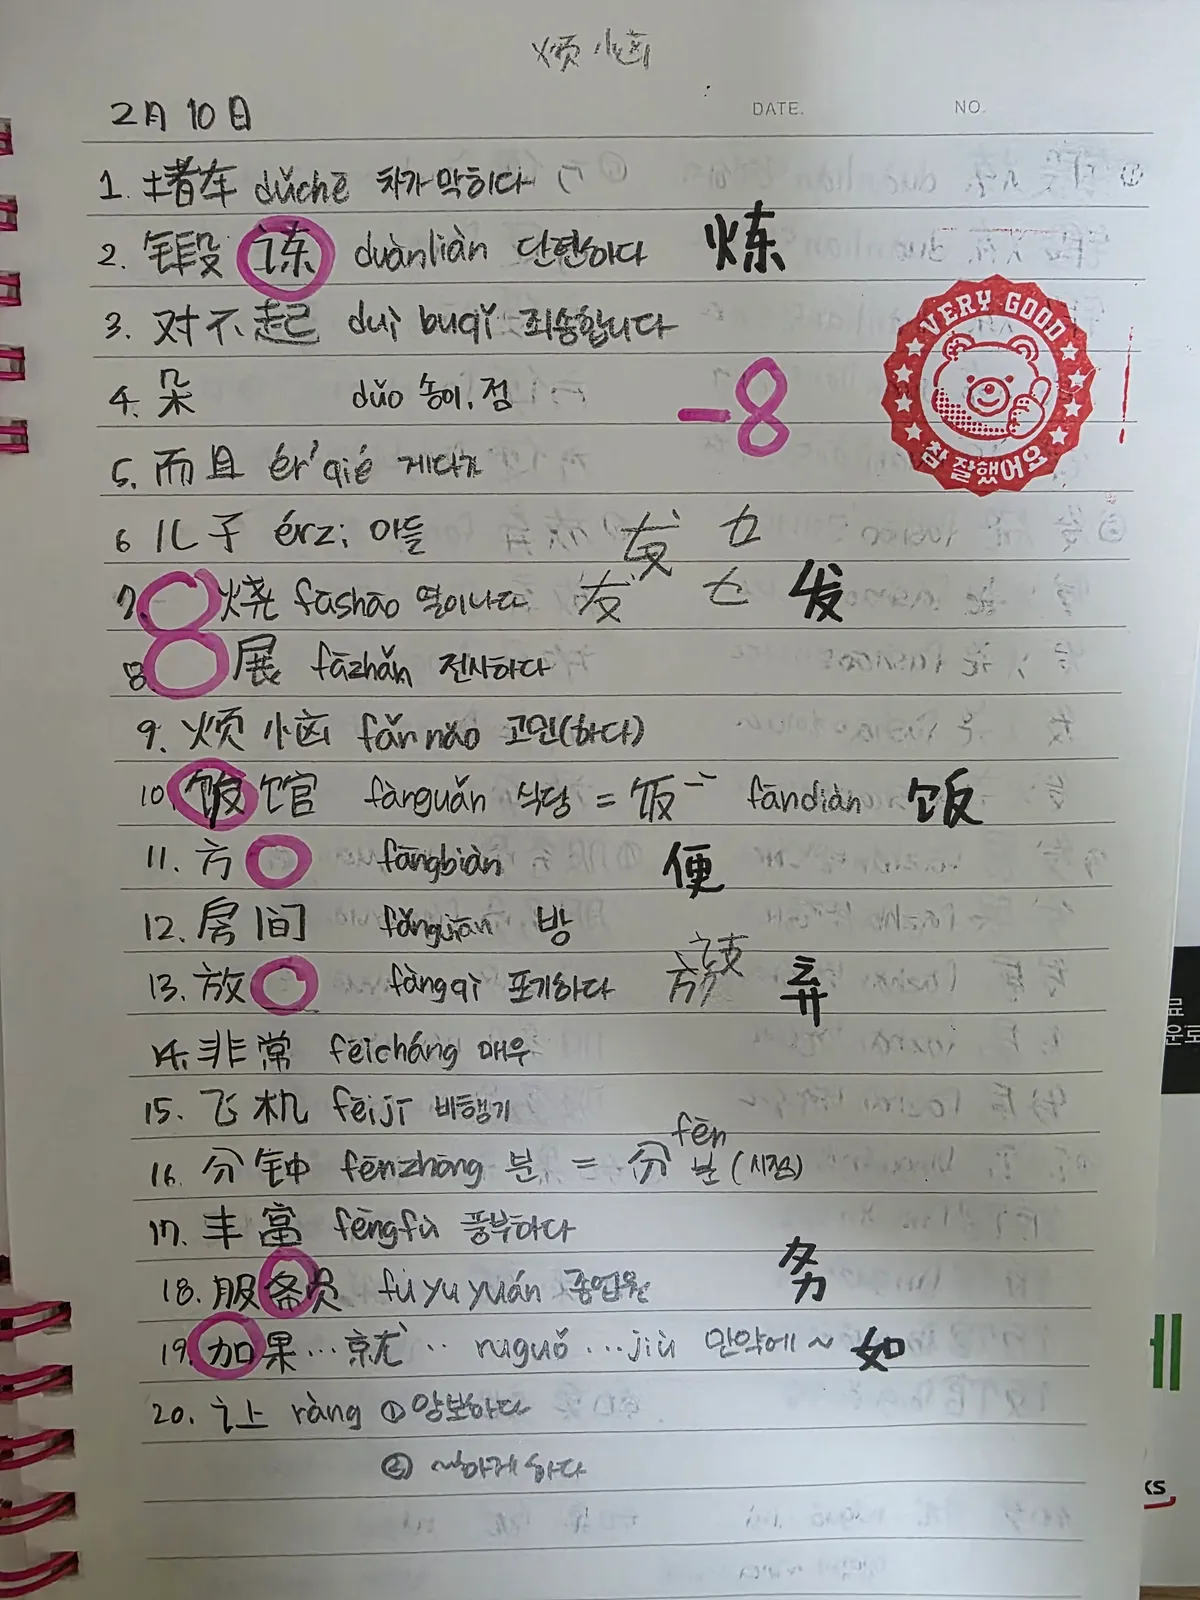 烦恼
2月 10日
DATE. NO.
1. 堵车 dǔchē 차가 막히다
2. 锻 duànliàn 단련하다 炼
3. 对不起 duì buqǐ 죄송합니다
4. 朵 duǒ 송이, 점
-8
VERY GOOD
참 잘했어요
5. 而且 ér'qié 게다가
6 儿子 érzi 아들
7 烧 fāshāo 열이나다 发
8 展 fāzhǎn 전시하다
9. 烦恼 fǎnnǎo 고민(하다)
10. 饭馆 fànguǎn 식당 = 饭 fāndiàn 饭
11. 方 fāngbiàn 便
12. 房间 fǎngjiān 방
13. 放 fàngqì 포기하다 弃
14. 非常 fēicháng 매우
15. 飞机 fēijī 비행기
fēn
16. 分钟 fēnzhōng 분 = 分 분 (시점)
17. 丰富 fēngfù 풍부하다
18. 服 员 fúyuyuán 종업원 务
19. 加果...就.. ruguǒ ...jiù 만약에~ 如
20. 让 ràng ① 양보하다
② ~하게 하다